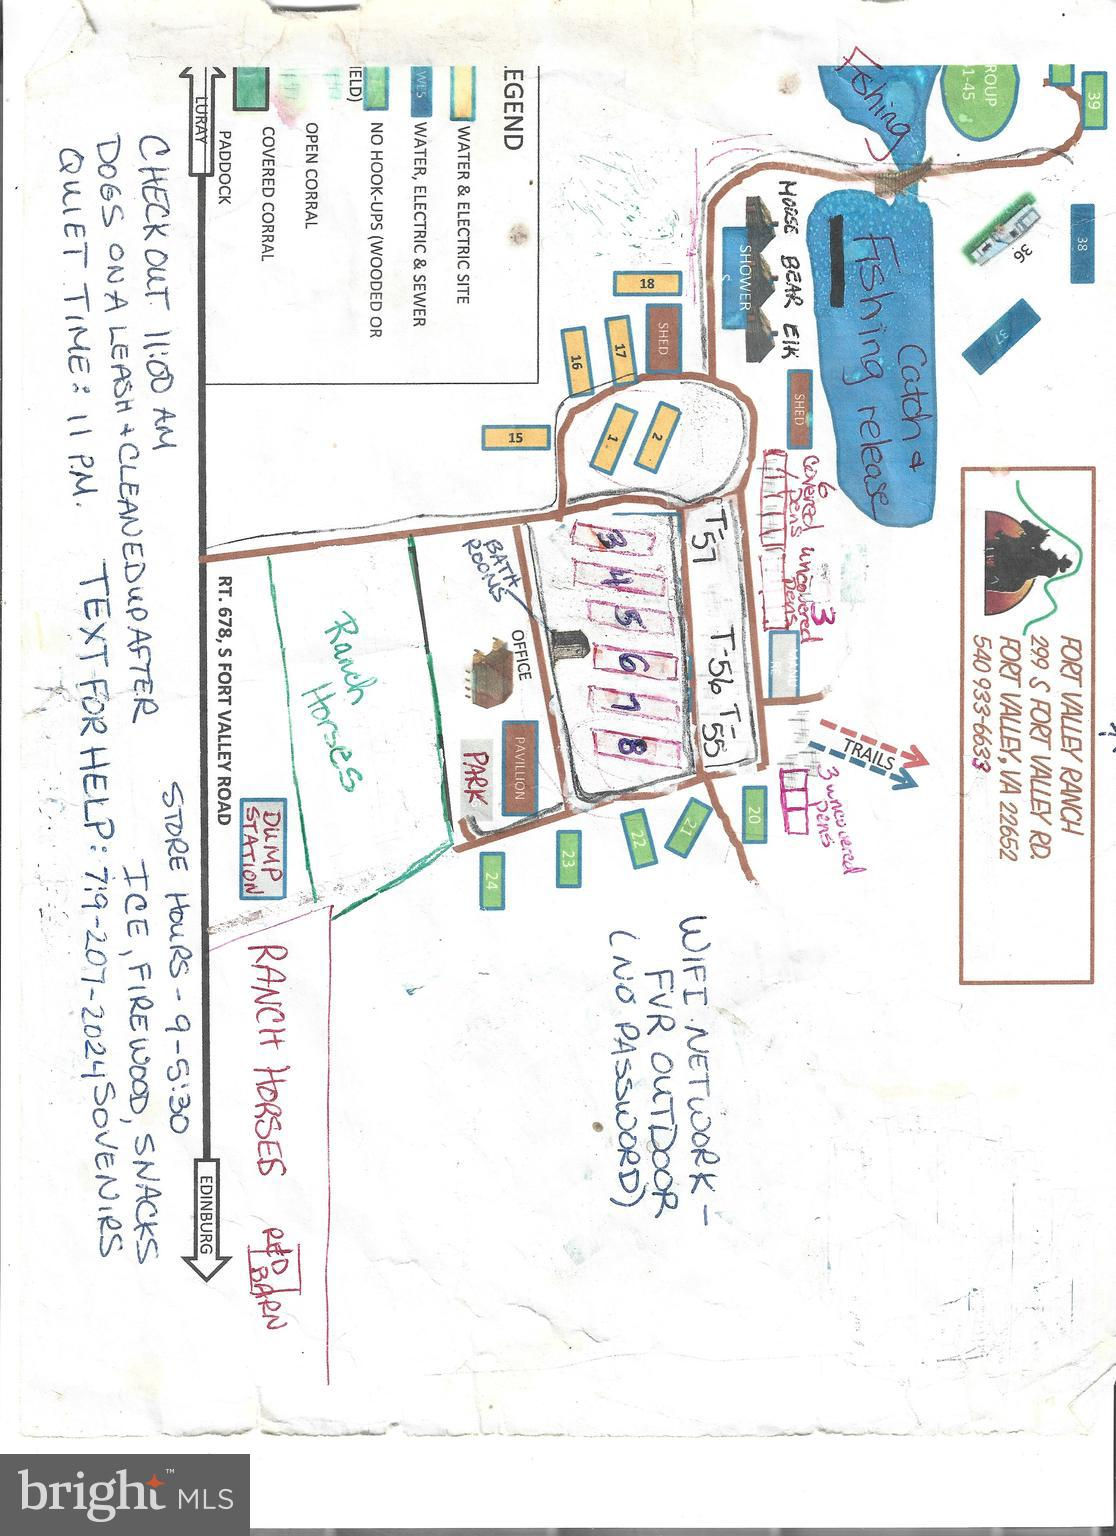 FORT VALLEY RANCH
299 S FORT VALLEY RD.
FORT VALLEY, VA 22652
540 933-6633
39
ROUP
1-45
38
36
37
Fishing
Catch &
Fishing release
MOOSE BEAR ElK
SHOWER
S
SHED
6
covered
pens
3
uncovered
pens
TRAILS
3 uncovered
pens
WIFI NETWORK -
FVR OUTDOOR
(NO PASSWORD)
18
SHED
17
16
15
1
2
T-57
T-56
T-55
3
4
5
6
7
8
20
21
22
23
24
BATH
ROOMS
OFFICE
PAVILLION
PARK
EGEND
WATER & ELECTRIC SITE
WES
WATER, ELECTRIC & SEWER
NO HOOK-UPS (WOODED OR
IELD)
OPEN CORRAL
COVERED CORRAL
PADDOCK
Ranch
Horses
DUMP
STATION
RANCH HORSES
RED
BARN
LURAY
RT. 678, S FORT VALLEY ROAD
EDINBURG
CHECK OUT 11:00 AM
DOGS ON A LEASH + CLEANED UP AFTER
QUIET TIME: 11 P.M.
TEXT FOR HELP: 719-207-2024
STORE HOURS - 9-5:30
ICE, FIREWOOD, SNACKS
SOVENIRS
bright MLS